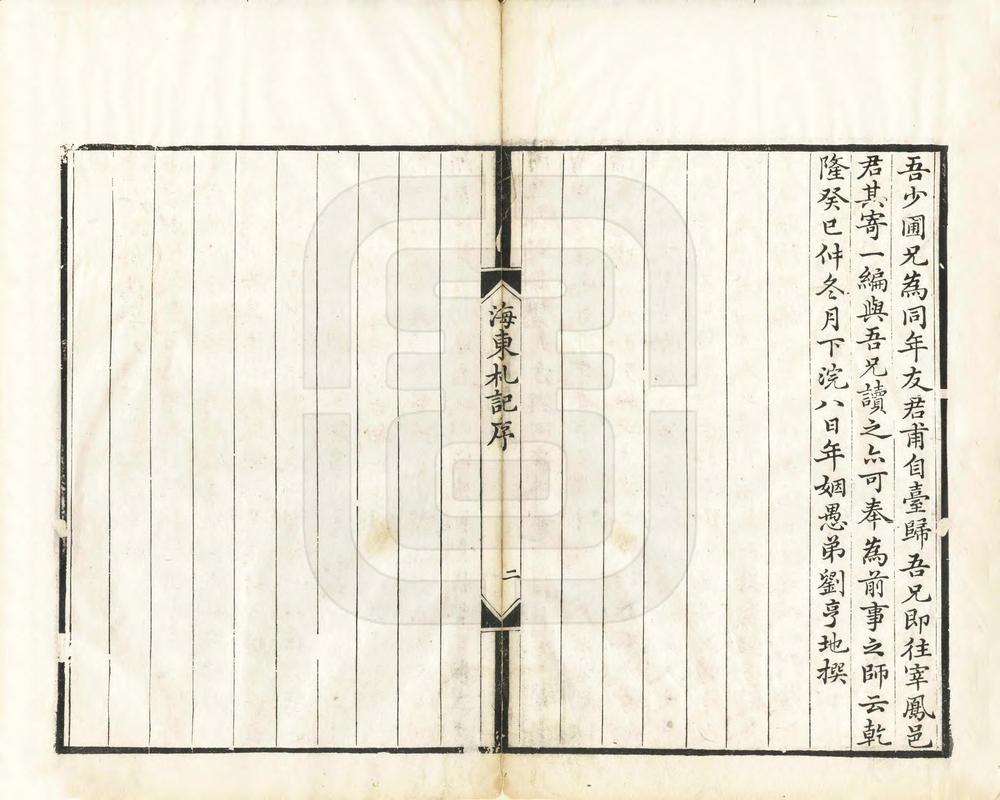 吾少圃兄為同年友君甫自臺歸吾兄即往宰鳳邑
君其寄一編與吾兄讀之亦可奉為前事之師云乾
隆癸巳仲冬月下浣八日年姻愚弟劉亨地撰
海東札記序
二